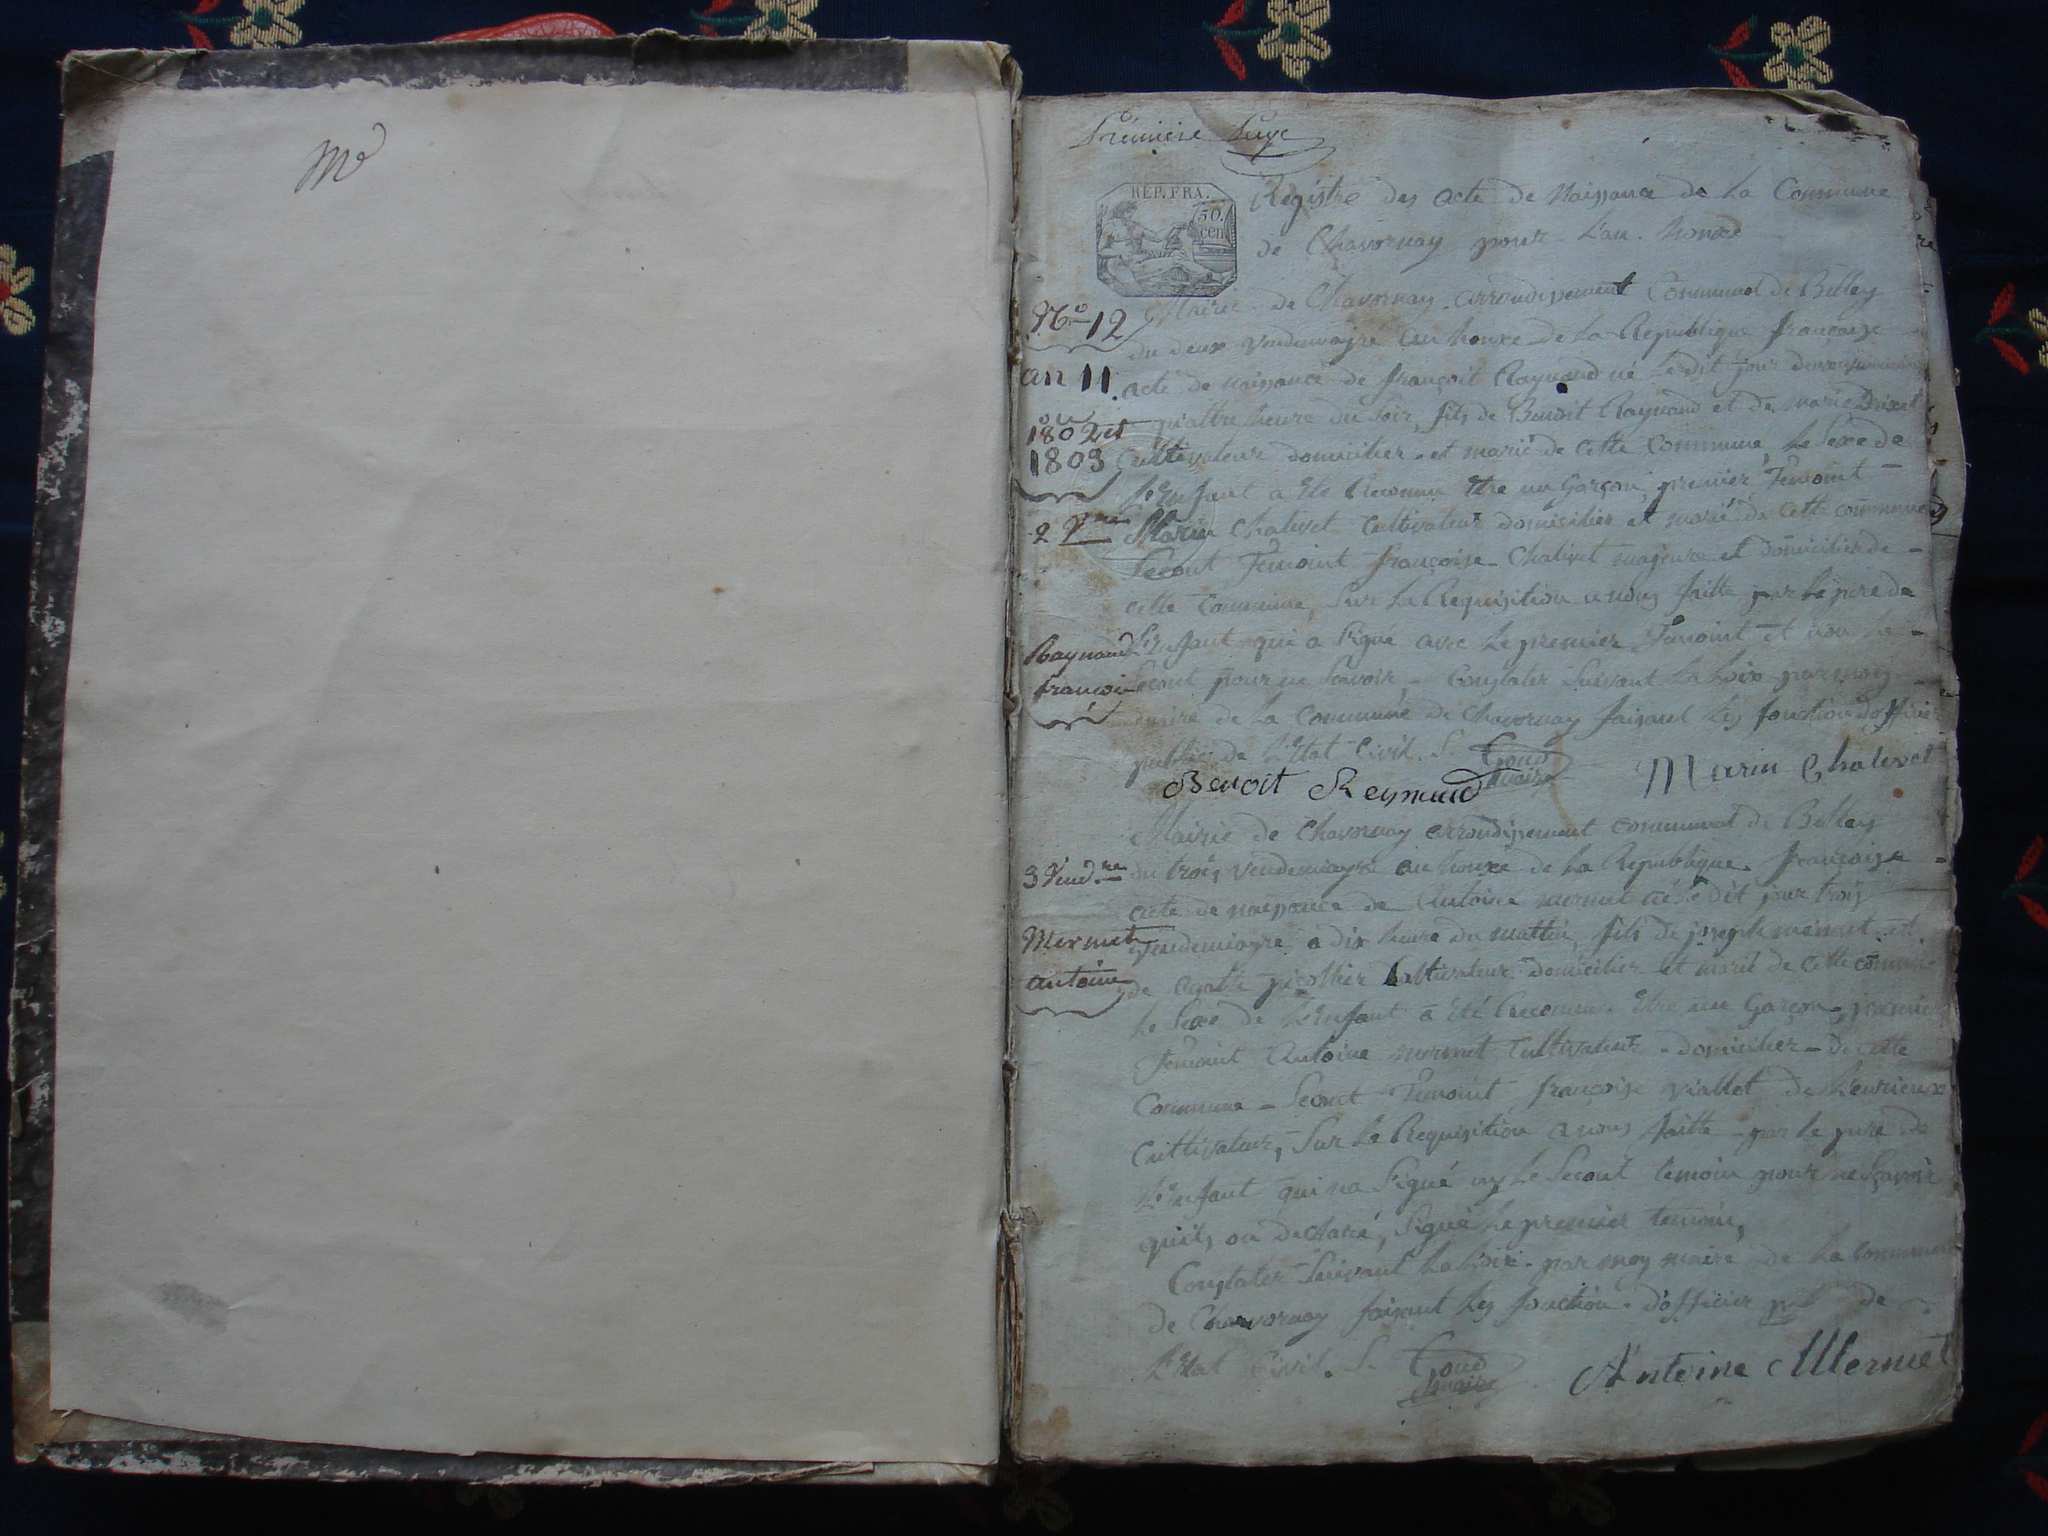 Mo
Première Page
REP. FRA.
50. cen.
Registre des acte de Naissance de La Commune
de Chavornay pour L'an honze
No 12
an 11.
ou
1802 et
1803
Mairie de Chavornay arrondissement Communal de Belley
du deux vendemiaire an honze de La Republique françoise
acte de naissance de françoit Raymand né Le dit jour deux
quattre heure du Soir, fils de Benoit Raymand et de marie
Cultivateur domicilier et marié de Cette Commune, Le Sexe de
L'Enfant a Eté Reconnu Etre un Garçon, premier Temoint
2 Vre
Marin Chalivet Cultivateur domicilier et marié de Cette commune
Secont Temoint françoise Chalivet majeure et domicilier de
cette Commune, Sur La Requisition a nous faitte par Le pere de
Raymand
françois
L'Enfant qui a Signé avec Le premier Temoint et non Le
Secont pour ne Savoir, Constater Suivant La Loix par moy
maire de La Commune de Chavornay faisant Les fonction d'officier
public de L'Etat Civil. S.
Goud
maire
Marin Chalivet
Benoit Reymand
Mairie de Chavornay arrondissement communal de Belley
3 Vend.re
du trois vendemiayre an honze de La Republique françoise
acte de naissance de Antoine mermet né Le dit jour trois
Mermet
antoine
Vendemiayre à dix heure du mattin, fils de joseph mermet et
de Cultivateur domicilier et marié de Cette commune
Le Sexe de L'Enfant a Eté Reconnu Etre un Garçon, premier
Temoint Antoine mermet Cultivateur domicilier De Cette
Commune Secont Temoint françoise viallet de
Cultivateur, Sur Le Requisition a nous faitte par le pere de
L'Enfant qui na Signé ny Le Secont temoin pour ne Sçavoir
quils on declaré, Signé Le premier temoin,
Constater Suivant La Loix par moy maire de La Commune
de Chavornay faisant Les fonction d'officier pub de
L'Etat Civil. S.
Goud
maire
Antoine Mermet